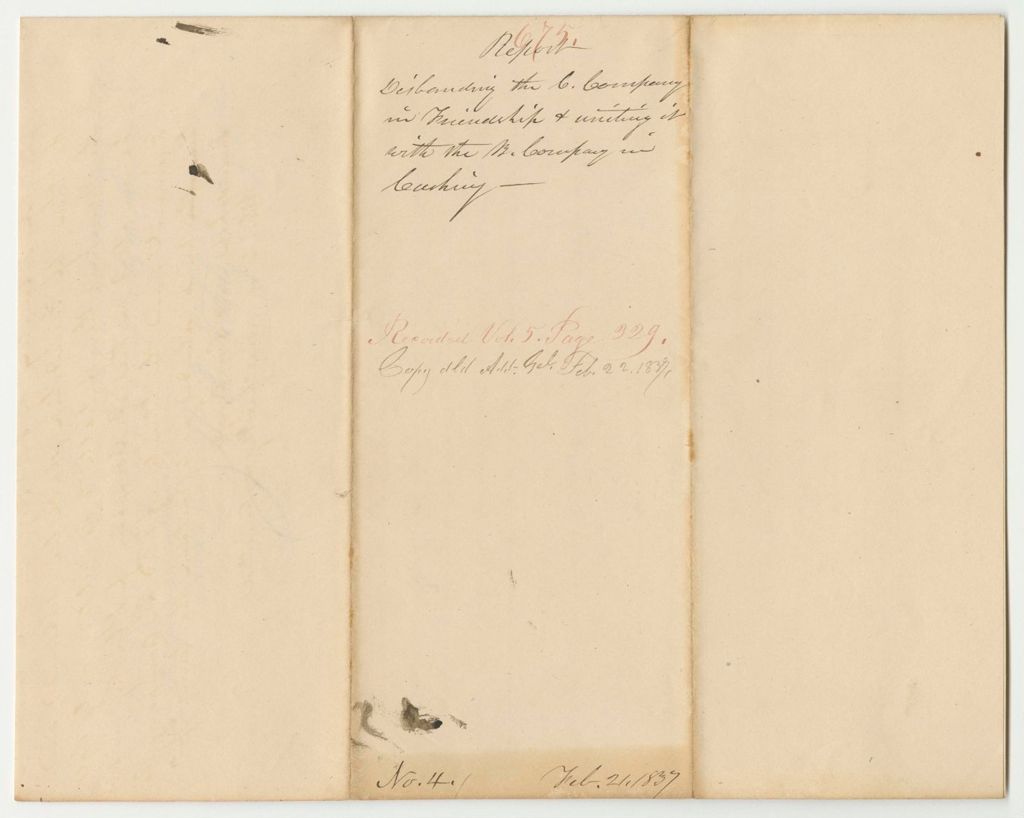 675.
Report
Disbanding the C. Company
in Friendship & uniting it
with the B. Company in
Cushing —
Recorded Vol. 5. Page 329.
Copy dld Adt. Genl. Feb. 22. 1837.
No. 4.
Feb. 21, 1837